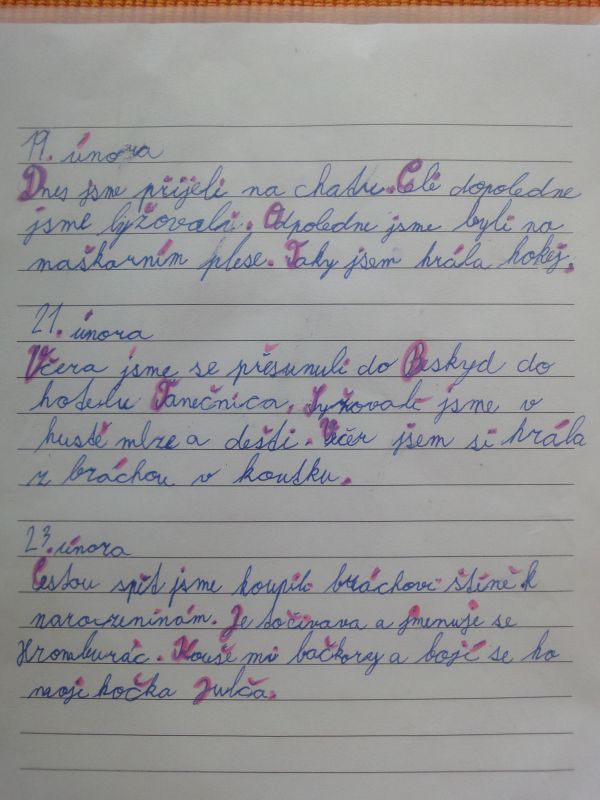 19. února
Dnes jsme přijeli na chatu. Celé dopoledne
jsme lyžovali. Odpoledne jsme byli na
maškarním plese. Taky jsem hrála hokej.
21. února
Včera jsme se přesunuli do Beskyd do
hotelu Tanečnica. Lyžovali jsme v
husté mlze a dešti. Večer jsem si hrála
z bráchou v koutku.
23. února
Cestou spět jsme koupili bráchovi štěně k
narozeninám. Je to čivava a jmenuje se
Hromburác. Kouše mi bačkory a bojí se ho
moji kočka Julča.